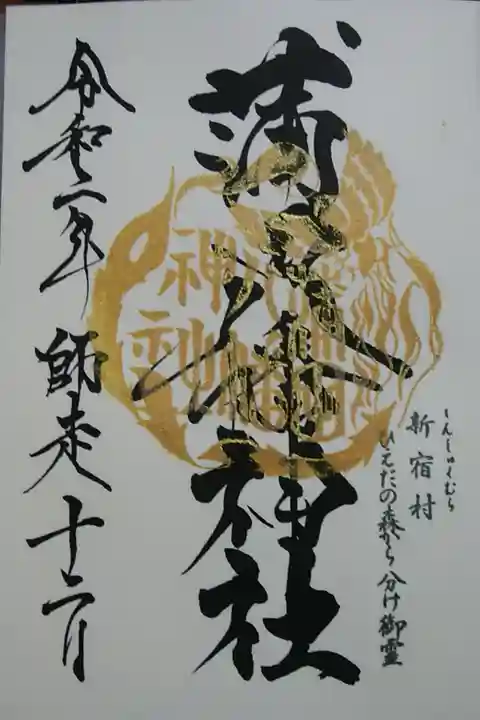 しんしゅくむら
新宿村
ひえだの森から分け御霊
蒲田八幡神社
令和二年 師走 十六日